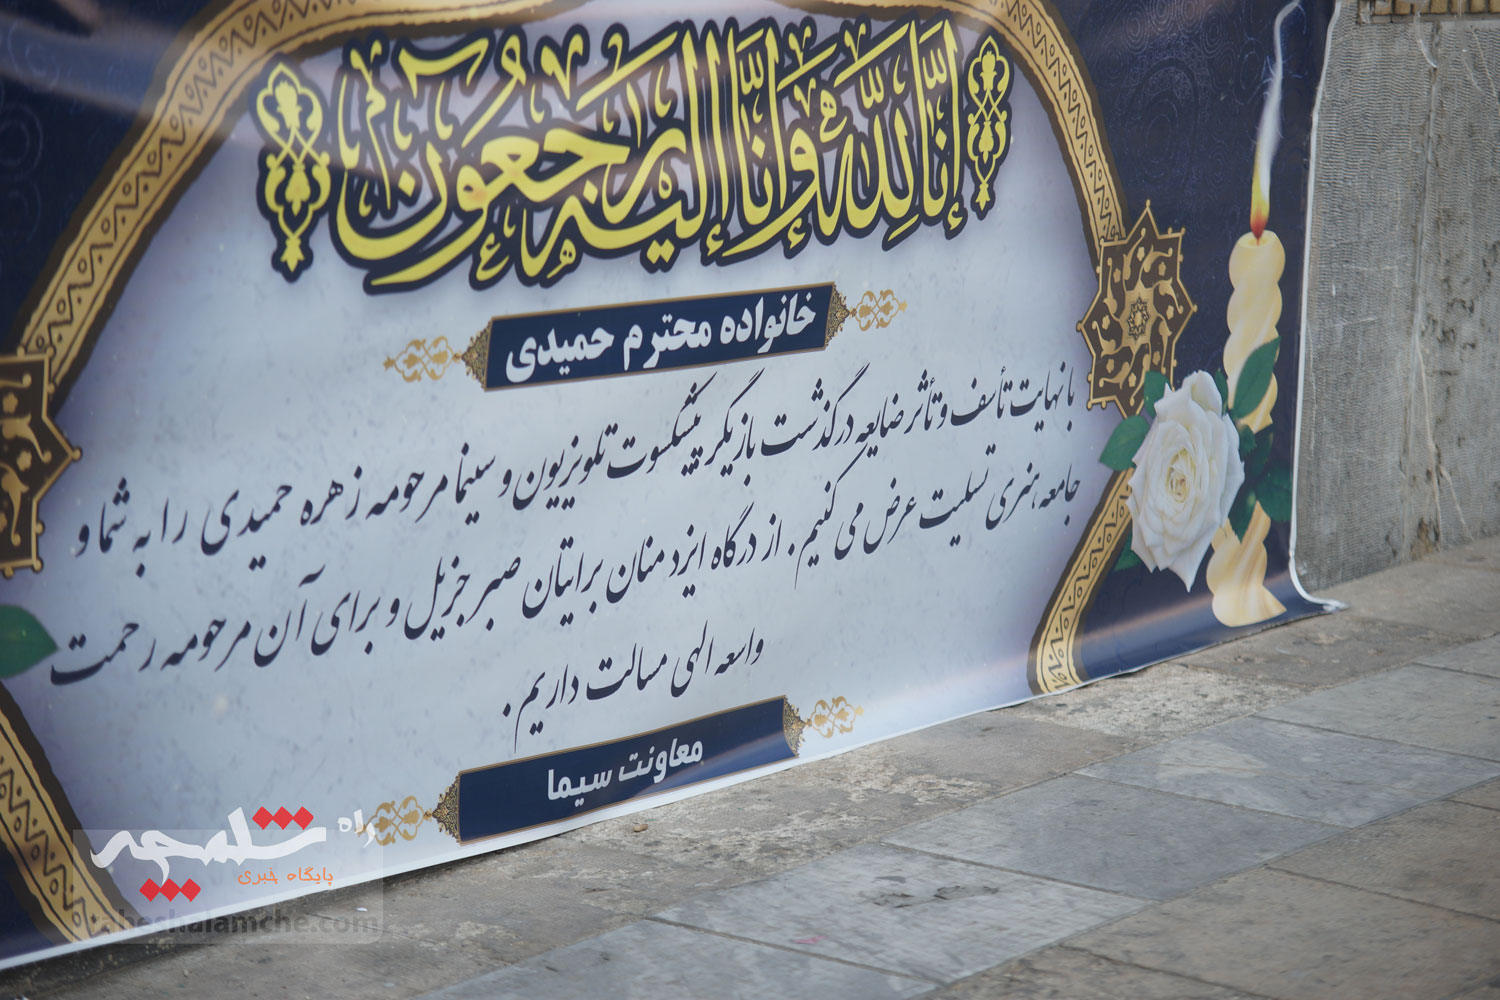 إنا لله وإنا إليه راجعون
خانواده محترم حمیدی
با نهایت تأسف و تأثر ضایعه درگذشت بازیگر پیشکسوت تلویزیون و سینما مرحومه زهره حمیدی را به شما و
جامعه هنری تسلیت عرض می کنیم. از درگاه ایزد منان برایتان صبر جزیل و برای آن مرحومه رحمت
واسعه الهی مسالت داریم.
معاونت سیما
راه شلمچه
پایگاه خبری
raheshalamche.com